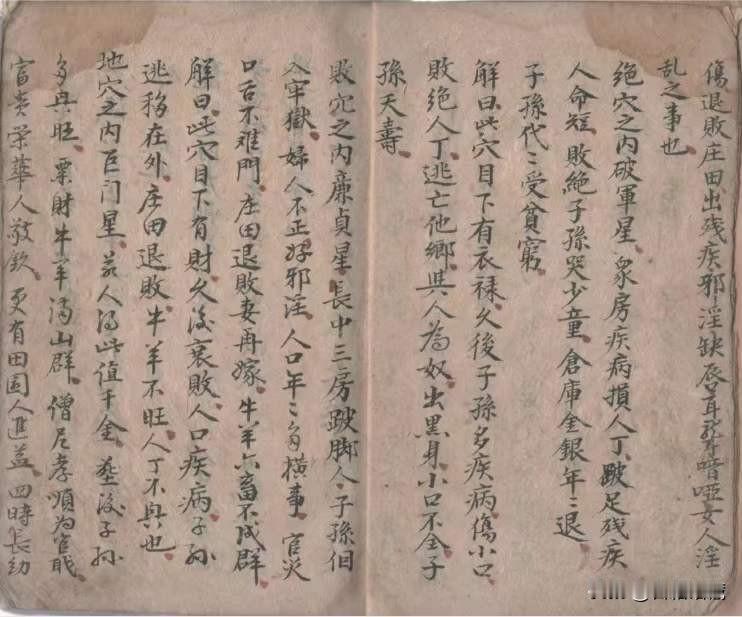 傷退敗庄田出残疾邪淫缺唇耳聾喑啞女人淫
乱之事也
絕穴之内破軍星衆房疾病損人丁跛足残疾
人命短敗絕子孫哭少童倉庫金銀年〻退
子孫代〻受貧窮
解曰此穴目下有衣祿久後子孫多疾病傷小口
敗絕人丁逃亡他鄉與人為奴出黑身小口不全子
孫夭壽
敗穴之内廉貞星長中三房跛脚人子孫但
入牢獄婦人不正好邪淫人口年〻多橫事官災
口舌不难門庄田退敗妻再嫁牛羊六畜不成群
解曰此穴目下有財久後衰敗人口疾病子孫
逃移在外庄田退敗牛羊不旺人丁不興也
地穴之内巨门星若人淂此值千金塟後子孫
多興旺粟財牛羊满山群僧尼孝順为官戝
富贵荣華人敬欽更有田園人進益四時長幼